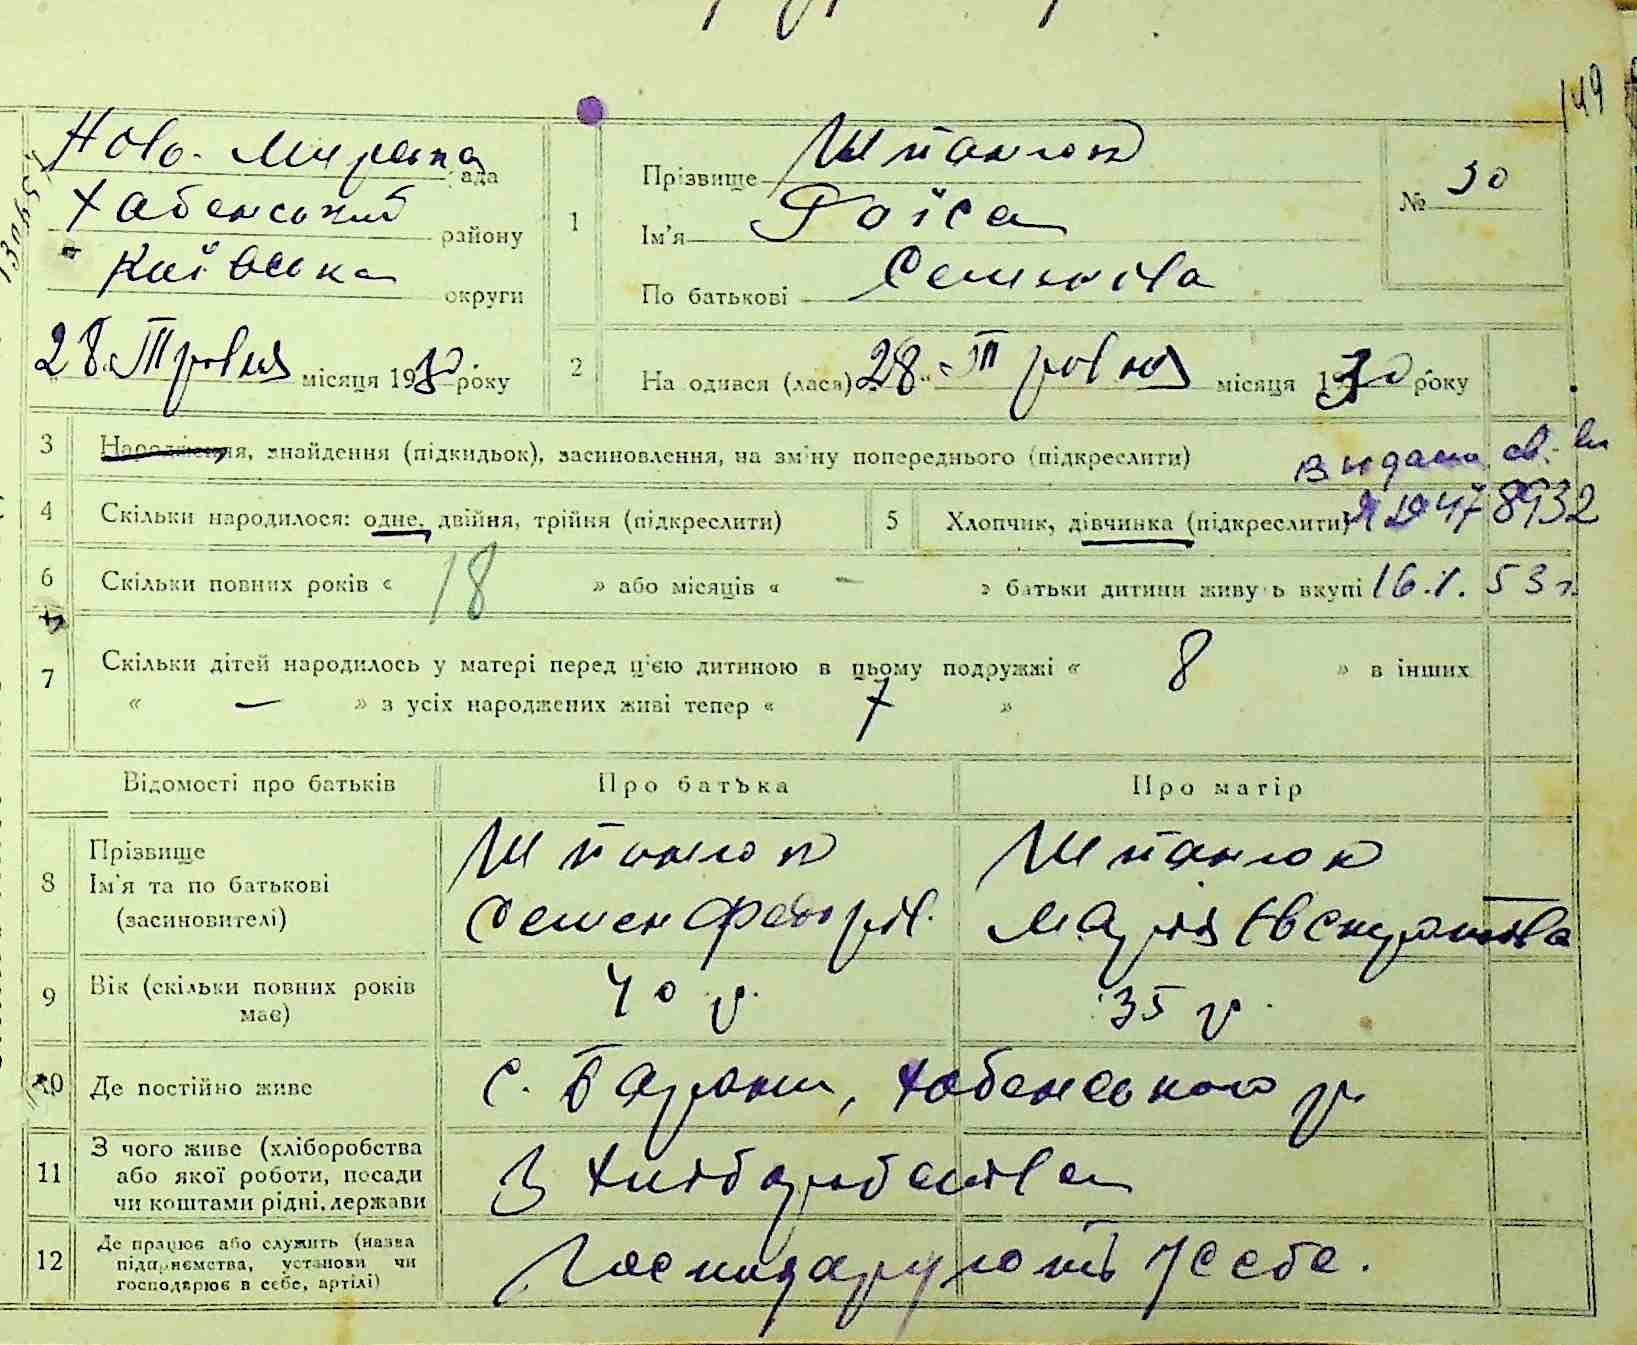 149
Ново-Мирська рада
Хабенський району
Київська округи
28 Травня місяця 1930 року
1
Прізвище Шпанюк
Ім'я Раїса
По батькові Семенівна
№ 30
2
На одився (лася) 28 " Травня місяця 1930 року
3 Народження, знайдення (підкидьок), засиновлення, на зміну попереднього (підкреслити)
Видана св-
4 Скільки народилося: одне, двійня, трійня (підкреслити)
5 Хлопчик, дівчинка (підкреслити)
478932
6 Скільки повних років « 18 » або місяців « – » батьки дитини живу ь вкупі
16.1.53 г.
7 Скільки дітей народилось у матері перед ц'єю дитиною в цьому подружжі « 8 » в інших
« – » з усіх народжених живі тепер « 7 »
Відомості про батьків Про батька Про матір
8 Прізвище
Ім'я та по батькові
(засиновителі)
Шпанюк
Семен Федоров.
Шпанюк
Марія
9 Вік (скільки повних років
має)
40 р. 35 р.
10 Де постійно живе с. Барани, Хабенського р.
11 З чого живе (хліборобства
або якої роботи, посади
чи коштами рідні, держави
З хліборобства
12 Де працює або служить (назва
підприємства, установи чи
господарює в себе, артілі)
Господарюють у себе.